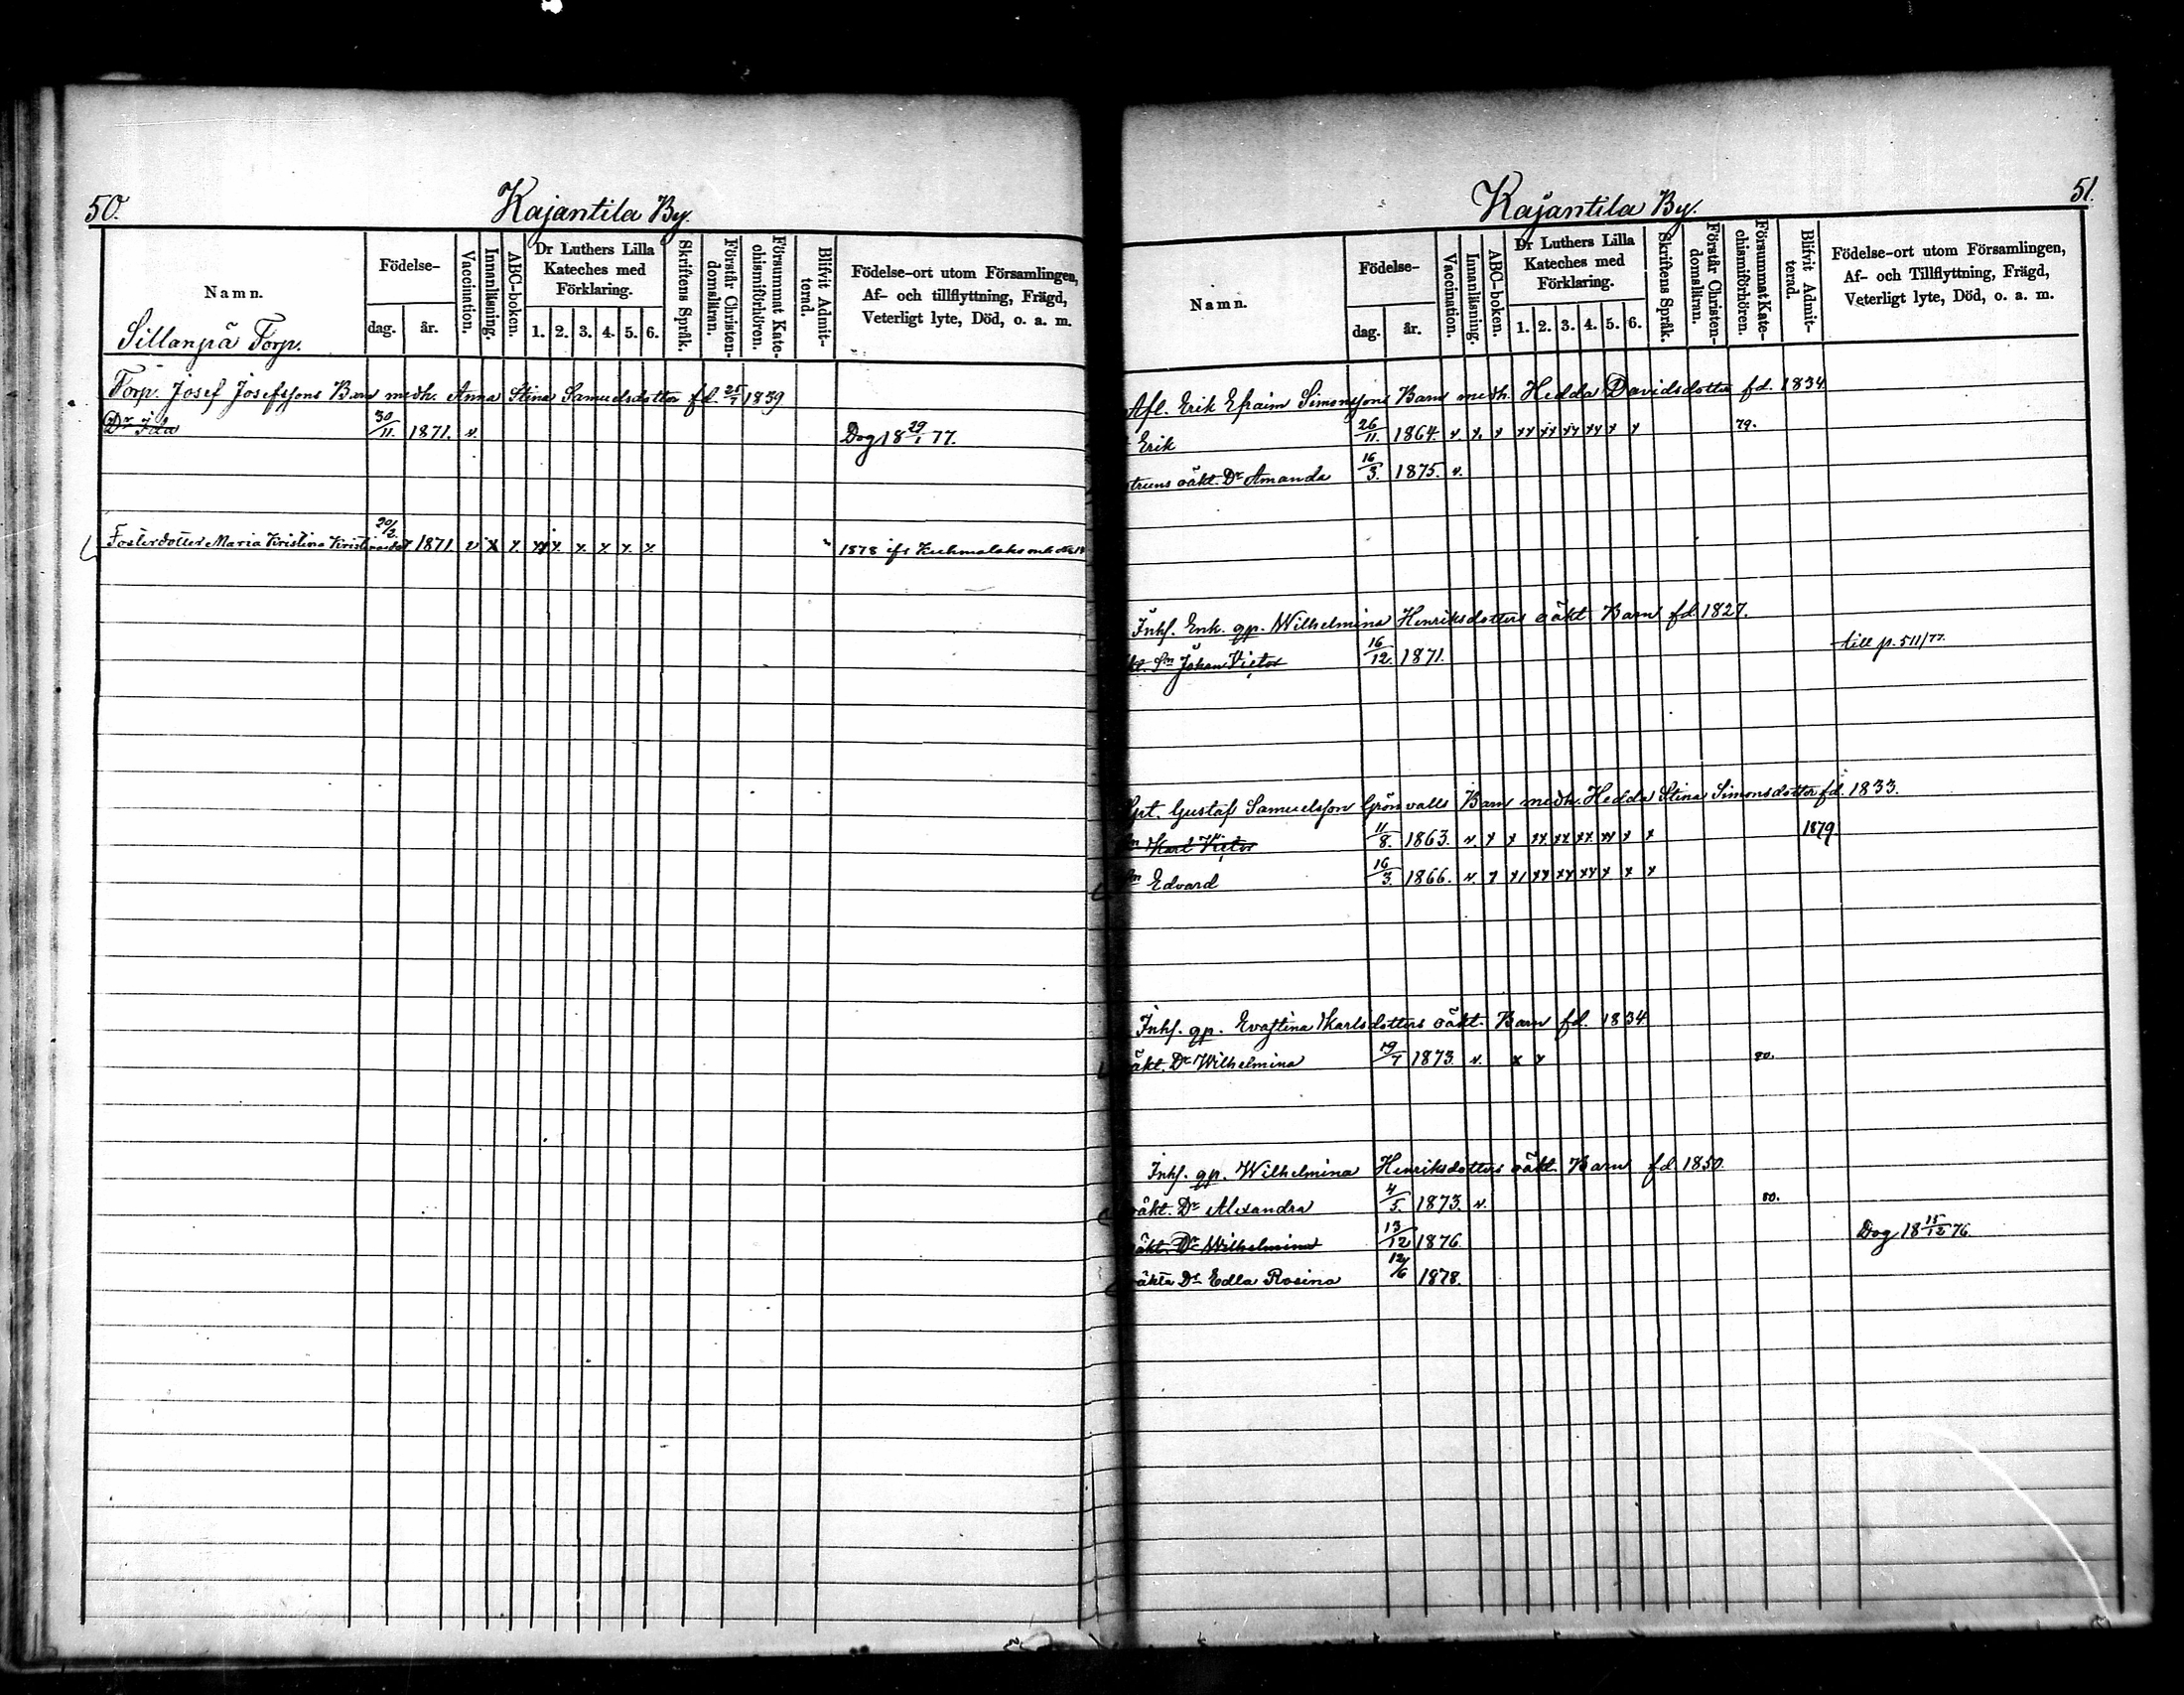 50.
Kajantila By.
Namn.
Födelse-
dag.
år.
Vaccination.
Innanläsning.
ABC-boken.
Dr Luthers Lilla Kateches med Förklaring.
1. 2. 3. 4. 5. 6.
Skriftens Språk.
Förstår Christen-domsläran.
Försummat Kate-chismiförhören.
Blifvit Admit-terad.
Födelse-ort utom Församlingen,
Af- och tillflyttning, Frägd,
Veterligt lyte, Död, o. a. m.
Sillanpä Torp.
Torp. Josef Josefssons Barn medh. Anna Stina Samuelsdotter fd. 25/7 1839
Dr Ida 30/11 1871. v. Dog 18 29/1 77.
Fosterdotter Maria Kristina 20/2 1871 v x x xx x x x x x 1878 ifr
51.
Kajantila By.
Namn.
Födelse-
dag.
år.
Vaccination.
Innanläsning.
ABC-boken.
Dr Luthers Lilla Kateches med Förklaring.
1. 2. 3. 4. 5. 6.
Skriftens Språk.
Förstår Christen-domsläran.
Försummat Kate-chismiförhören.
Blifvit Admit-terad.
Födelse-ort utom Församlingen,
Af- och Tillflyttning, Frägd,
Veterligt lyte, Död, o. a. m.
Afl. Erik Efraim Simonssons Barn medh. Hedda Davidsdotter fd. 1834
Erik 26/11. 1864. v. x. x xx xx xx xx x x 79.
oäkt. Dr Amanda 16/3. 1875. v.
Inhs. Enk. gp. Wilhelmina Henriksdotters oäkt Barn fd 1827.
Sn Johan Victor 16/12. 1871. till p. 511/77.
Gustaf Samuelsson Grönvalls Barn medh. Hedda Stina Simonsdotter fd. 1833.
Karl Victor 11/8. 1863. v. x x xx. xx xx. xx x x 1879.
Sn Edvard 16/3. 1866. v. x x1 xx xx xx x x x
Inhs. gp. Evastina Karlsdotters oäkt. Barn fd. 1834
äkt. Dr Wilhelmina 19/7 1873. v. x x 80.
Inhs. gp. Wilhelmina Henriksdotters oäkt Barn fd 1850.
oäkt. Dr Alexandra 4/5. 1873. v. 80.
äkt. Dr Wilhelmina 13/12 1876. Dog 18 15/12 76.
äkta Dr Edla Rosina 12/6 1878.